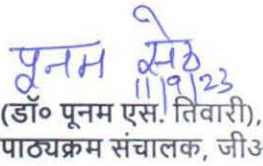 पूनम सेठ
11/9/23
(डॉ० पूनम एस. तिवारी),
पाठ्यक्रम संचालक, जी३